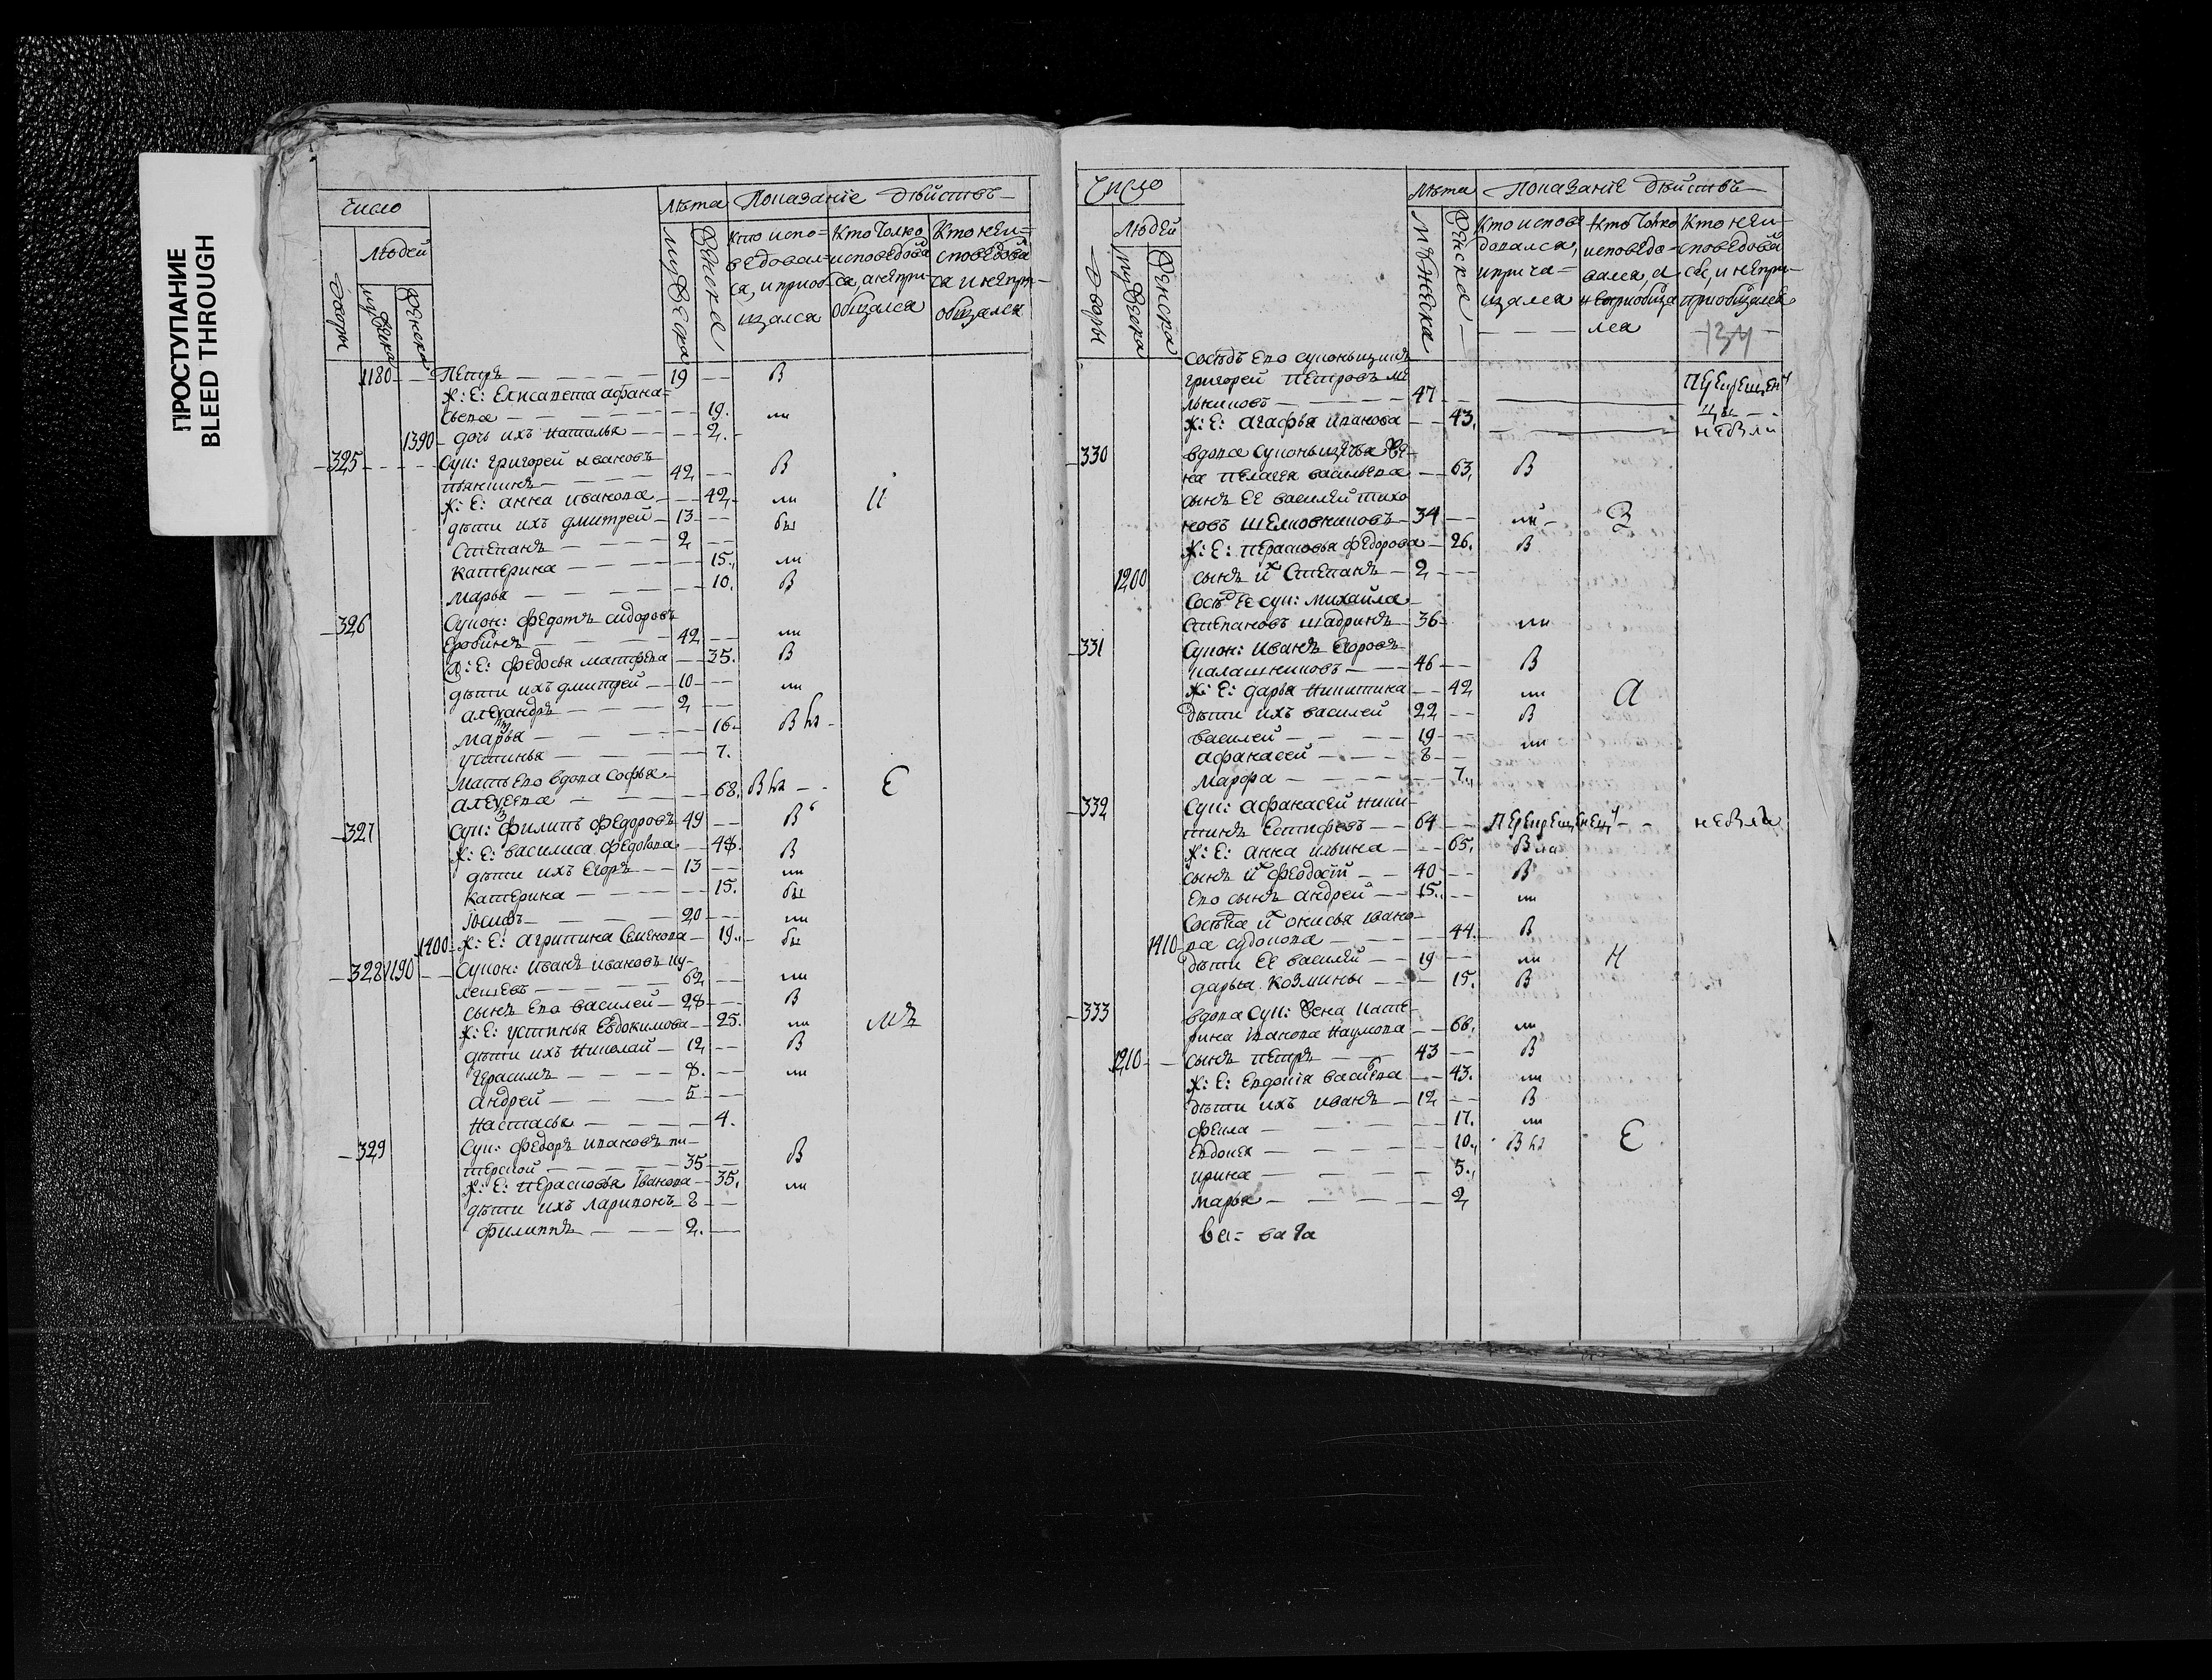 ПРОСТУПАНИЕ
BLEED THROUGH
Число
Лѣта Показанiе дѣйствъ
Людей
Дворы
мужеска
женска
мужеска
женска
Кто испо=
ведовал=
ся, и приоб=
щался
Кто Толко
исповедова
ся, а непри=
общался
Кто неи=
споведова
ся и непри=
общался
1180 Петръ 19 В
Ж: Е: Елисавета афана=
сьева 19. ли
1390 дочь ихъ наталья 2.
325 Суп: григорей ивановъ
пьянкинъ 42 В
Ж: Е: анна иванова 42 ли
дѣти ихъ дмитрей 13 бы
Степанъ 2
Катерина 15. ли
Марья 10. В
326 Супон: федотъ сидоровъ
42 ли
Ж: Е: федосья матфева 35. В
дѣти ихъ дмитрей 10 ли
александръ 2
Марья 16 В
устинья 7.
Мать ево вдова софья
алексеева 68. Е
327 Суп: филипъ федоровъ 49 В
Ж: Е: василиса федорова 48. В
дѣти ихъ егоръ 13 ли
Катерина 15. бы
Иосифъ 20 ли
1400 Ж: Е: агрипина Семенова 19. бы
328 1190 Супон: иванъ ивановъ ку=
лешевъ 62 ли
сынъ ево василей 28 В
Ж: Е: устинья Евдокимова 25. ли
дѣти ихъ николай 12 В
герасимъ 8. ли
андрей 5
настасья 4.
329 Суп: федоръ ивановъ пи=
терской 35 В
Ж: Е: Перасковья Іванова 35. ли
дѣти ихъ ларивонъ 8
филиппъ 2.
Число
Лѣта Показанiе дѣйствъ
Людей
Дворы
мужеска
женска
мужеска
женска
Кто испове
довался,
и прича=
щался
Кто Толко
исповедо=
вался, а
неприобща
лся
Кто неи=
споведова
ся, и непри=
приобщался
134
Сосѣдъ Ево
григорей петровъ ме
льниковъ 47
Ж: Е: агафья иванова 43.
330 вдова
на пелагея васильева 63. В
сынъ Ее василей тихо
новъ шелковниковъ 34 ли З
Ж: Е: перасковья федорова 26. В
1200 сынъ их Степанъ 2
Сосѣд Ее суп: михайла
степановъ шадринъ 36 ли
331 Супон: иванъ Егоровъ
калашниковъ 46 В
Ж: Е: дарья никитина 42 ли а
дѣти ихъ василей 22 В
василей 19
афанасей 8 ли
Марфа 7.
332 Суп: афанасей ники
тинъ 64
Ж: Е: анна ильина 65.
сынъ их феодосій 40 В
Ево сынъ андрей 15. ли
Сосѣтка их онисья ивано
1410 ва судокова 44. В
дѣти Ее василей 19 ли Н
дарья Козмины 15. В
333 вдова Суп: жена кате
рина иванова наумова 66. ли
1210 сынъ петръ 43 В
Ж: Е: 43. ли
дѣти ихъ иванъ 12 В
фекла 17. ли
Евдокея 10. Е
ирина 5.
марья 2